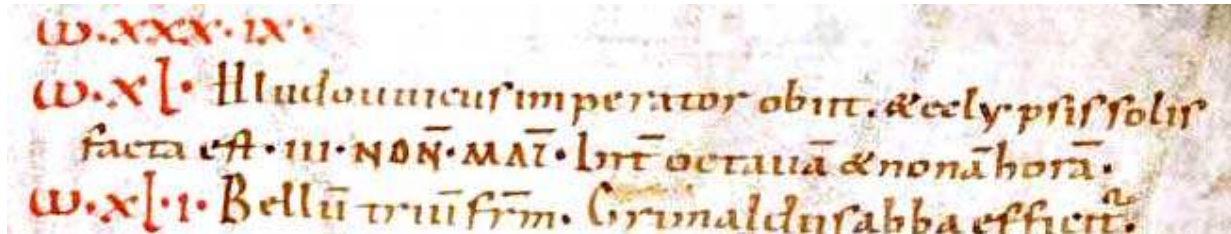 ω·xxx·ix·
ω·xl· Hludouuicus imperator obiit. & eclypsis solis
facta est· iii· NON̄· MAĪ· Int̄ octauā & nonā horā·
ω·xl·i· Bellū triū fr̄m. Grimaldus abba efficit᷑.